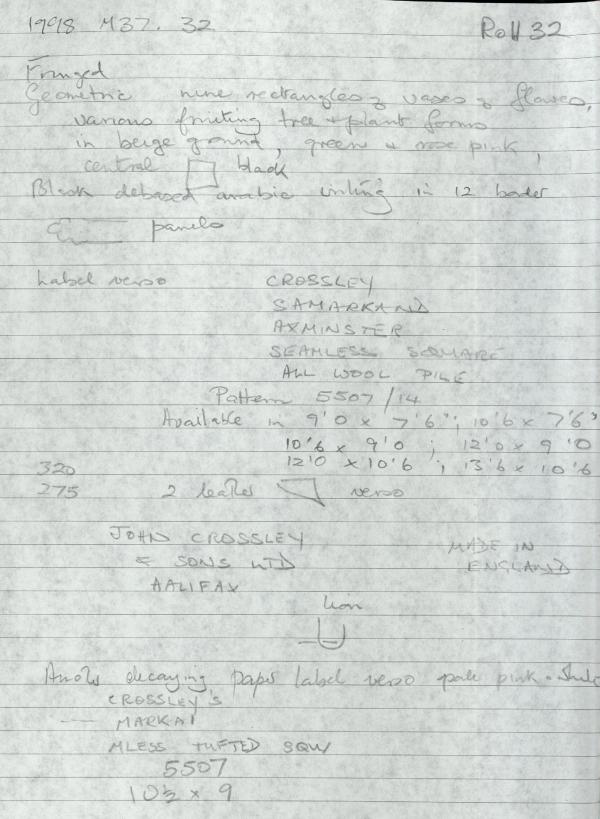 1998 M37. 32
Roll 32
Fringed
Geometric nine rectangles of vases of flowers,
various fruiting tree + plant forms
in beige ground, green + rose pink,
central black
Black debased arabic writing in 12 border
panels
Label verso
CROSSLEY
SAMARKAND
AXMINSTER
SEAMLESS SQUARE
ALL WOOL PILE
Pattern 5507/14
Available in 9'0 x 7'6"; 10'6 x 7'6"
10'6 x 9'0 ; 12'0 x 9'0
12'0 x 10'6 ; 13'6 x 10'6
320
275
2 leather verso
JOHN CROSSLEY
& SONS LTD
AALIFAX
MADE IN
ENGLAND
lion
decaying paper label verso pale pink
CROSSLEY'S
MARKA
MLESS TUFTED SQU
5507
10½ x 9